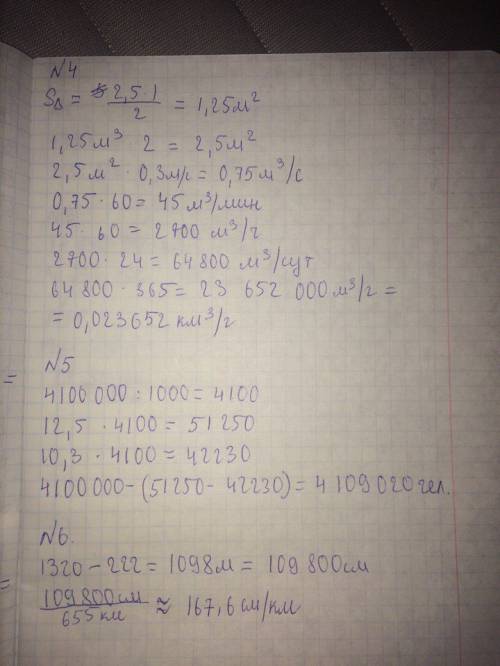 №4
S△ = 2,5·1/2 = 1,25м²
1,25м³ · 2 = 2,5м²
2,5м² · 0,3м/с = 0,75м³/с
0,75·60 = 45 м³/мин
45·60 = 2700 м³/г
2700·24 = 64800 м³/сут
64 800·365 = 23 652 000м³/г =
= 0,023652 км³/г
№5
4100 000 : 1000 = 4100
12,5 · 4100 = 51250
10,3 · 4100 = 42230
4100000-(51250-42230) = 4 109 020 чел.
№6.
1320 - 222 = 1098м = 109 800см
109 800см/655 км ≈ 167,6 см/км